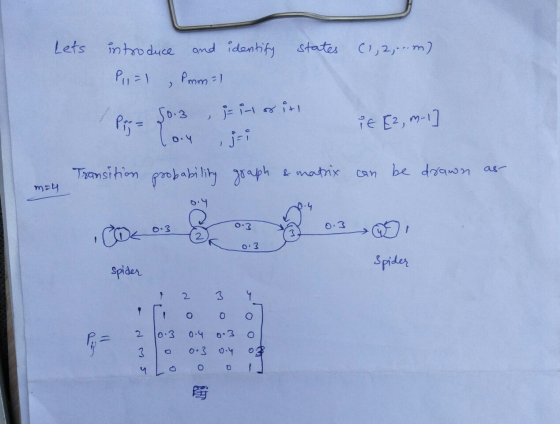 Lets introduce and identify states (1,2,...m)
P11 = 1 , Pmm = 1
Pij = { 0.3 , j = i-1 or i+1
0.4 , j=i
i ∈ [2, m-1]
m=4
Transition probability graph & matrix can be drawn as
0.4 0.4
1 1 0.3 2 0.3 3 0.3 4 1
0.3
Spider Spider
1 2 3 4
1 1 0 0 0
Pij = 2 0.3 0.4 0.3 0
3 0 0.3 0.4 0.3
4 0 0 0 1